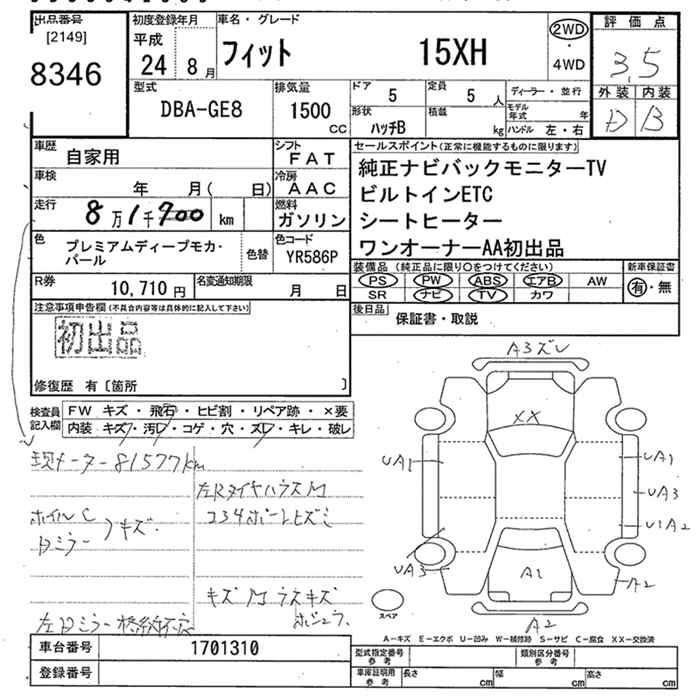 出品番号
[2149]
8346
初度登録年月
平成
24 8月
車名・グレード
フィット 15XH
2WD
・
4WD
評価点
3.5
外装 内装
D B
型式
DBA-GE8
排気量
1500
CC
ドア
5
定員
5 人
形状
ハッチB
積載
kg
ディーラー・並行
モデル年式 年
ハンドル 左・右
車歴
自家用
シフト
FAT
車検
年 月( 日)
冷房
AAC
走行
8万1千700 km
燃料
ガソリン
色
プレミアムディープモカ・
パール
色替
色コード
YR586P
R券
10,710円
名変通知期限
月 日
セールスポイント(正常に機能するものに限ります)
純正ナビバックモニターTV
ビルトインETC
シートヒーター
ワンオーナーAA初出品
装備品(純正品に限り○をつけてください)
PS PW ABS エアB AW
SR ナビ TV カワ
新車保証書
有・無
後日品
保証書・取説
注意事項申告欄(不具合内容等は具体的に記入して下さい)
初出品
修復歴 有〔箇所 〕
検査員
記入欄
FW キズ・飛石・ヒビ割・リペア跡・×要
内装 キズ・汚レ・コゲ・穴・スレ・キレ・破レ
現メーター81577km
ホイルC
Dミラー
キズ
左Rタイヤハウス
キズ
左Dミラー
A3ズレ
XX
UA1
UA3
UA1
UA3
U1A2
A1
A2
A2
スペア
A-キズ E-エクボ U-凹み W-補修跡 S-サビ C-腐食 XX-交換済
車台番号
1701310
登録番号
型式指定番号
参考
類別区分番号
参考
車庫証明用
参考
長さ cm
幅 cm
高さ cm